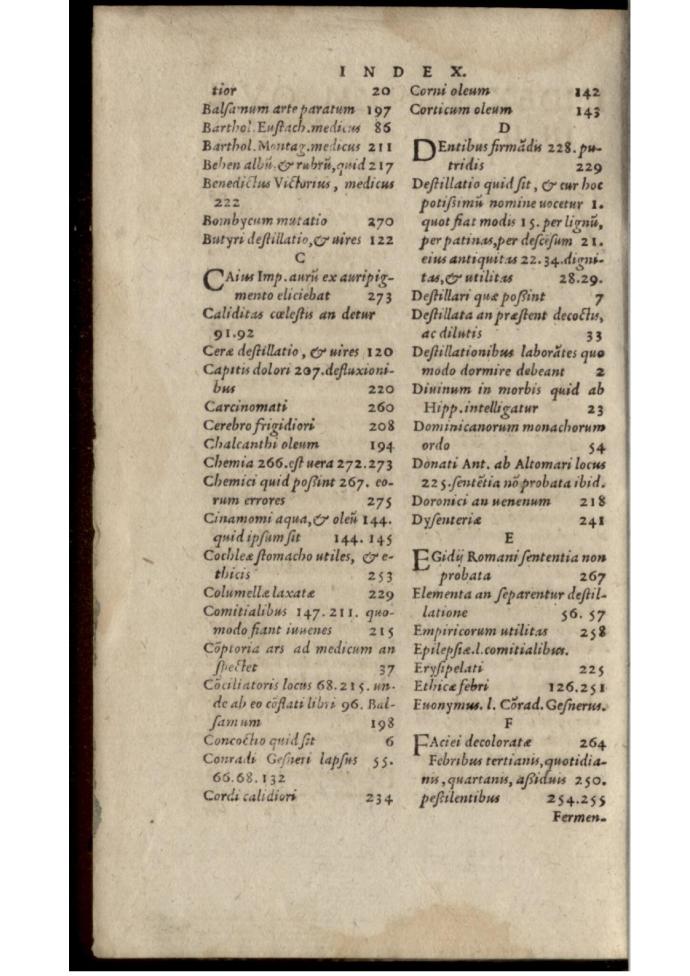 INDEX.
tior 20
Balsamum arte paratum 197
Barthol. Eustach. medicus 86
Barthol. Montag. medicus 211
Behen albū, & rubrū, quid 217
Benedictus Victorius, medicus
222
Bombycum mutatio 270
Butyri destillatio, & uires 122
C
CAius Imp. aurū ex auripig-
mento eliciebat 273
Caliditas cœlestis an detur
91.92
Ceræ destillatio, & uires 120
Capitis dolori 207. defluxioni-
bus 220
Carcinomati 260
Cerebro frigidiori 208
Chalcanthi oleum 194
Chemia 266. est uera 272.273
Chemici quid possint 267. eo-
rum errores 275
Cinamomi aqua, & oleū 144.
quid ipsum sit 144.145
Cochleæ stomacho utiles, & e-
thicis 253
Columellæ laxatæ 229
Comitialibus 147.211. quo-
modo fiant iuuenes 215
Cōptoria ars ad medicum an
spectet 37
Cōciliatoris locus 68.215. un-
de ab eo cōflati libri 96. Bal-
samum 198
Concoctio quid sit 6
Conradi Gesneri lapsus 55.
66.68.132
Cordi calidiori 234
Corni oleum 142
Corticum oleum 143
D
DEntibus firmādis 228. pu-
tridis 229
Destillatio quid sit, & cur hoc
potissimū nomine uocetur 1.
quot fiat modis 15. per lignū,
per patinas, per descēsum 21.
eius antiquitas 22.34. digni-
tas, & utilitas 28.29.
Destillari quæ possint 7
Destillata an præstent decoctis,
ac dilutis 33
Destillationibus laborātes quo
modo dormire debeant 2
Diuinum in morbis quid ab
Hipp. intelligatur 23
Dominicanorum monachorum
ordo 54
Donati Ant. ab Altomari locus
225. sentētia nō probata ibid.
Doronici an uenenum 218
Dysenteriæ 241
E
EGidij Romani sententia non
probata 267
Elementa an separentur destil-
latione 56.57
Empiricorum utilitas 258
Epilepsiæ. l. comitialibus.
Erysipelati 225
Ethicæ febri 126.251
Euonymus. l. Cōrad. Gesnerus.
F
FAciei decoloratæ 264
Febribus tertianis, quotidia-
nis, quartanis, assiduis 250.
pestilentibus 254.255
Fermen-